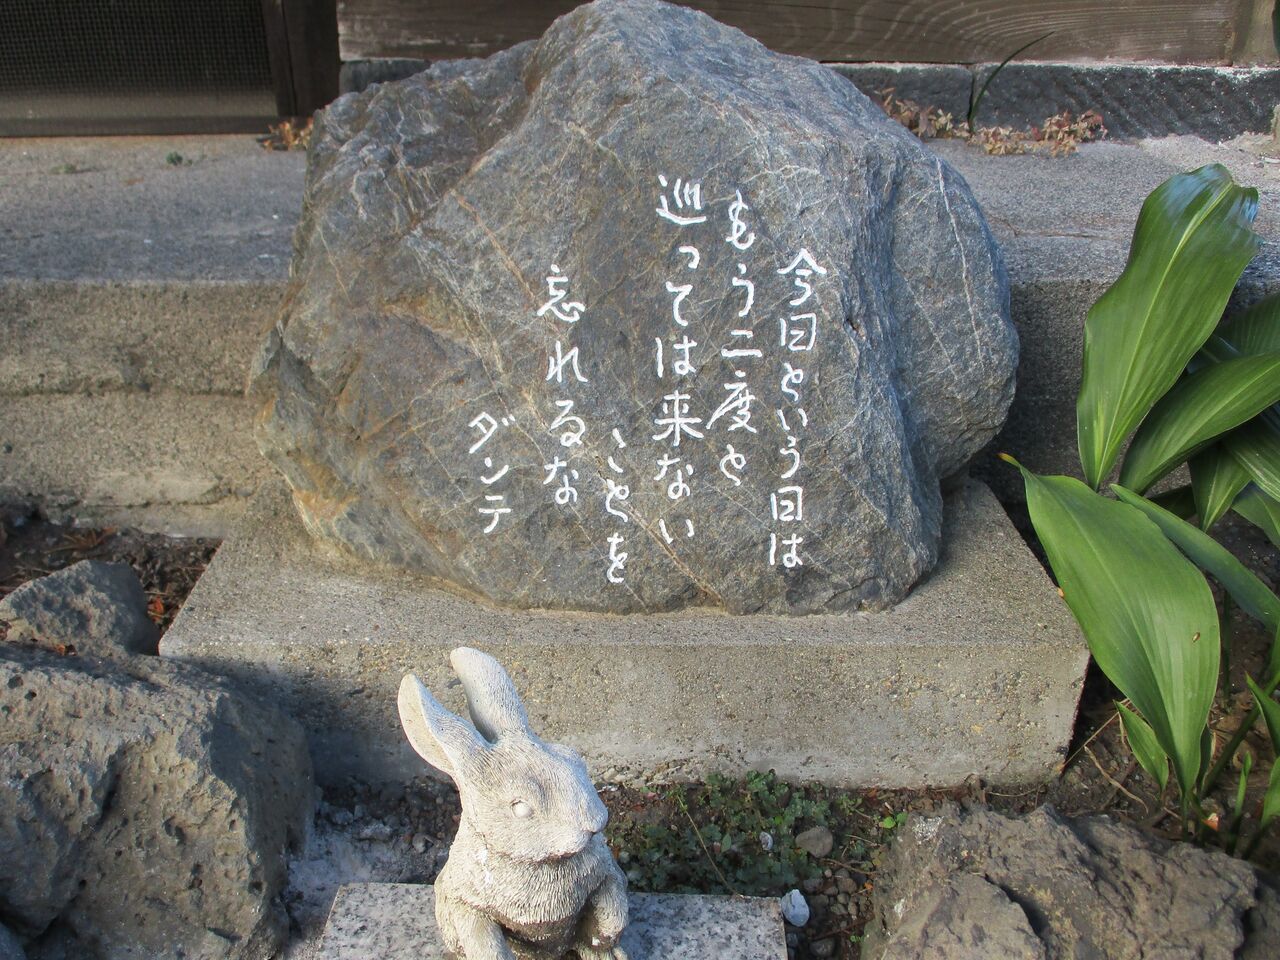 今日という日は
もう二度と
巡っては来ない
ことを
忘れるな
ダンテ